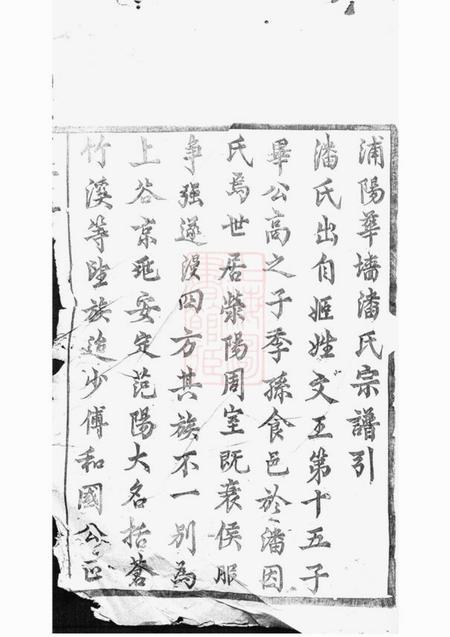 浦陽華墻潘氏宗譜引
潘氏出自姬姓文王第十五子
畢公高之子季孫食邑於潘因
氏焉世居滎陽周室既衰侯服
爭强遂漫四方其族不一別為
上谷京兆安定范陽大名括蒼
竹溪等陸族迨少傅和國公正